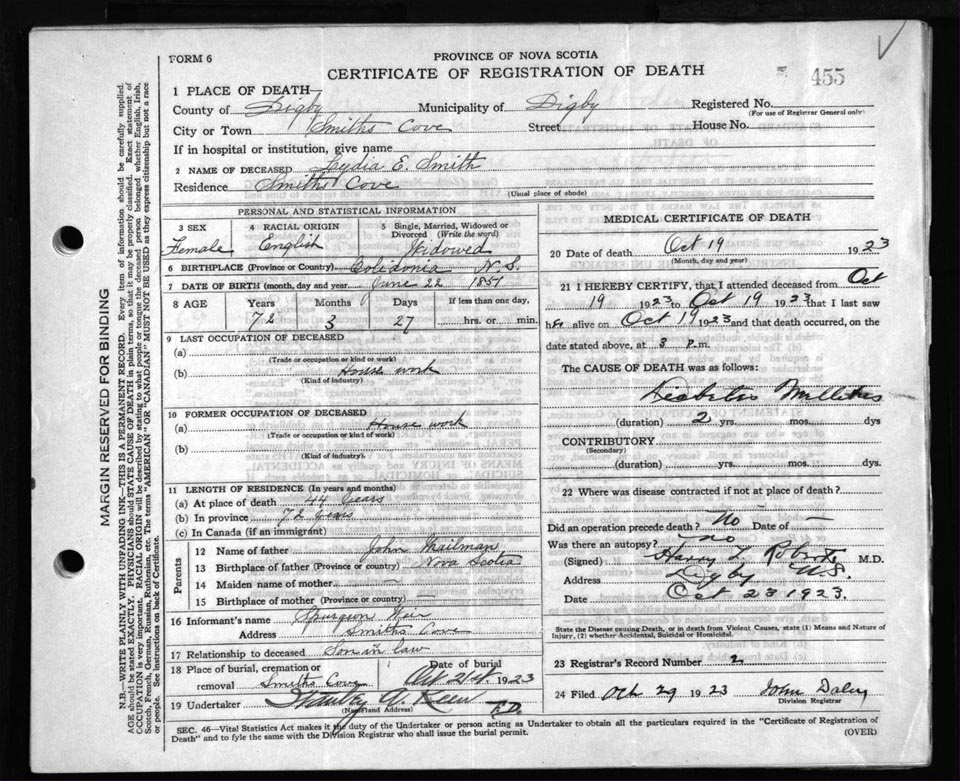 FORM 6
PROVINCE OF NOVA SCOTIA
CERTIFICATE OF REGISTRATION OF DEATH
455
1 PLACE OF DEATH
County of Digby Municipality of Digby Registered No.
(For use of Registrar General only)
City or Town Smiths Cove Street House No.
If in hospital or institution, give name
2 NAME OF DECEASED Lydia E. Smith
Residence Smiths Cove
(Usual place of abode)
PERSONAL AND STATISTICAL INFORMATION
3 SEX Female
4 RACIAL ORIGIN English
5 Single, Married, Widowed or Divorced (Write the word) Widowed
6 BIRTHPLACE (Province or Country) Colidonia N.S.
7 DATE OF BIRTH (month, day and year) June 22 1851
8 AGE Years Months Days If less than one day,
72 3 27 hrs. or min.
9 LAST OCCUPATION OF DECEASED
(a)
(Trade or occupation or kind of work)
(b) House work
(Kind of industry)
10 FORMER OCCUPATION OF DECEASED
(a) House work
(Trade or occupation or kind of work)
(b)
(Kind of industry)
11 LENGTH OF RESIDENCE (In years and months)
(a) At place of death 44 years
(b) In province 72 years
(c) In Canada (if an immigrant)
Parents
12 Name of father John Mailman
13 Birthplace of father (Province or country) Nova Scotia
14 Maiden name of mother —
15 Birthplace of mother (Province or country) —
16 Informant's name Spurgeon Weir
Address Smiths Cove
17 Relationship to deceased Son in law
18 Place of burial, cremation or removal Smiths Cove Date of burial Oct 21st 1923
19 Undertaker
(Name and Address)
F.D.
MEDICAL CERTIFICATE OF DEATH
20 Date of death Oct 19 1923
(Month, day and year)
21 I HEREBY CERTIFY, that I attended deceased from Oct
19 1923 to Oct 19 1923 that I last saw
her alive on Oct 19 1923 and that death occurred, on
date stated above, at 3 P.m.
The CAUSE OF DEATH was as follows:
Diabetis Mellitus
(duration) 2 yrs. mos. dys
CONTRIBUTORY
(Secondary)
(duration) yrs. mos. dys.
22 Where was disease contracted if not at place of death?
Did an operation precede death? No Date of —
Was there an autopsy? no
(Signed) Harry L. Roberts M.D.
Address Digby N.S.
Date Oct 23 1923.
State the Disease causing Death, or in death from Violent Causes, state (1) Means and Nature of Injury, (2) whether Accidental, Suicidal or Homicidal.
23 Registrar's Record Number 2
24 Filed Oct 29 1923 John Daley
Division Registrar
SEC. 46—Vital Statistics Act makes it the duty of the Undertaker or person acting as Undertaker to obtain all the particulars required in the "Certificate of Registration of
Death" and to fyle the same with the Division Registrar who shall issue the burial permit.
(OVER)
MARGIN RESERVED FOR BINDING
N.B.—WRITE PLAINLY WITH UNFADING INK—THIS IS A PERMANENT RECORD. Every item of information should be carefully supplied.
AGE should be stated EXACTLY. PHYSICIANS should STATE CAUSE OF DEATH in plain terms, so that it may be properly classified. Exact statement of
OCCUPATION is very important. RACIAL ORIGIN will be described by stating to what people or tongue the deceased person belonged whether English, Irish,
Scotch, French, German, Russian, Ruthenian, etc. The terms "AMERICAN" OR "CANADIAN" MUST NOT BE USED as they express citizenship but not a race
or people. See instructions on back of Certificate.